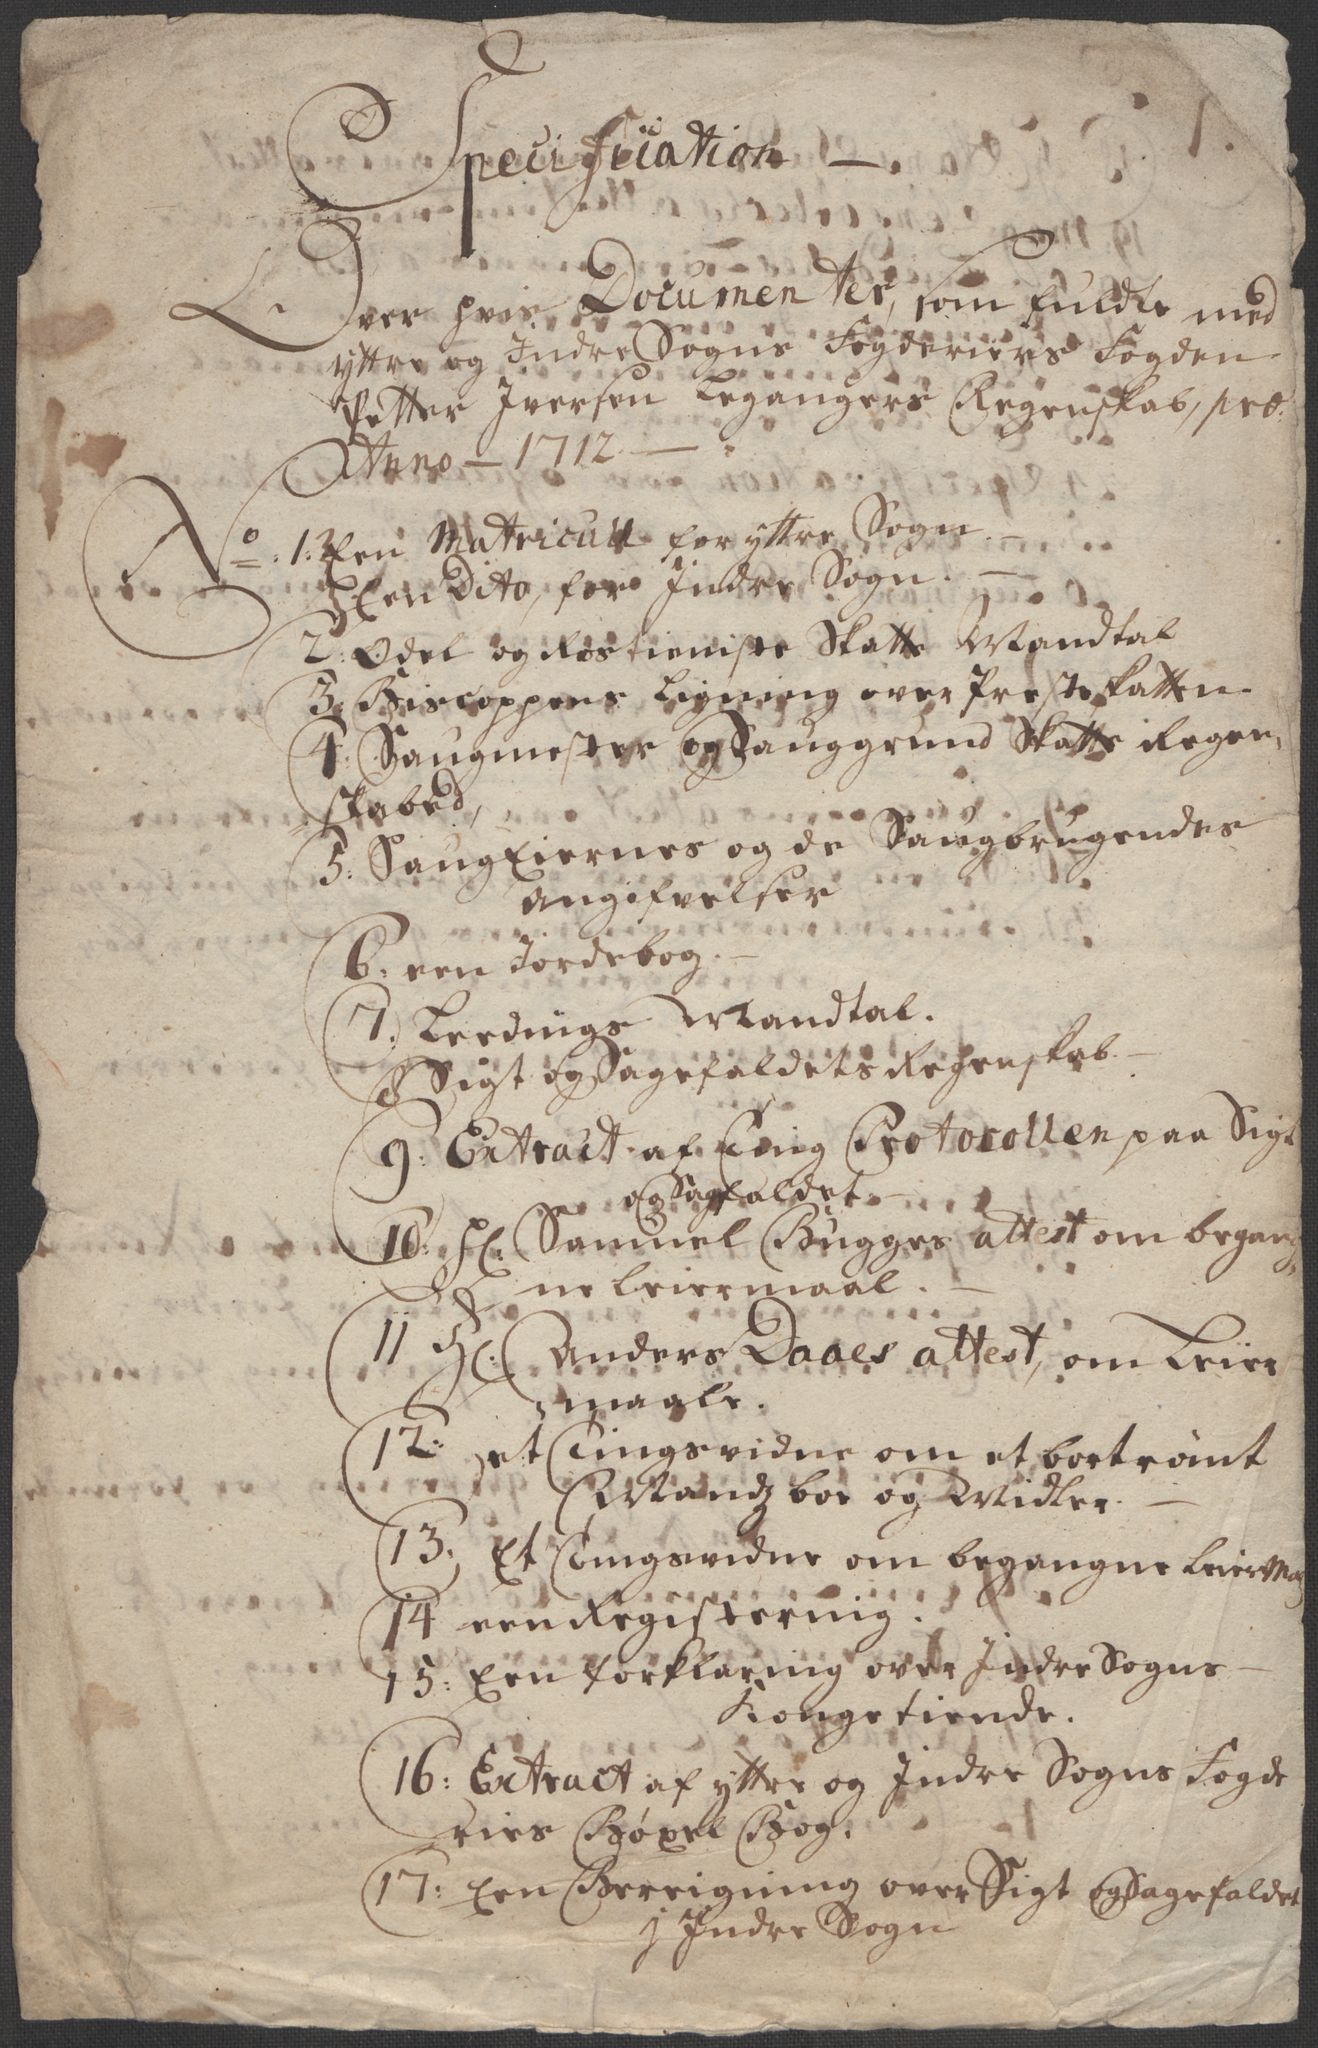 Specification —.
Over hvis Documenter, som fuldte med
yttre og Indre Sogns Fogderiers Fogden
Petter Iversen Legangers Regenskab, pro:
Anno — 1712 —
No: 1: Een Matricull for yttre Sogn. —
Een Dito, for Indre Sogn. —
2: Odel og Rostieniste Skatte Mandtal
3: Biscoppens Ligning over Prest skatten
4: Saugmester og Sauggrund Skatte Regen,
skabed,
5: Saugeiernes og de Saugbrugendes
angifvelser
6: een Jordebog. —
7: Leedings Mandtal.
8 Sigt og Sagefaldets Regenskab. —
9: Extract af Ting Protocollen paa Sigt
og Sagefaldet —
10: Hr: Samuel Bugges attest om begang,
ne Leiermaal. —
11 Hr: Anders Daaes attest, om Leier
maale.
12: et Tingsvidne om et bortrømt
Mandz boe og Midler. —
13: Et Tingsvidne om begangne Leiermaal
14 een Registering.
15: Een forklaring over Indre Sogns —
Kongetiende.
16: Extract af yttre og Indre Sogns Fogde
ries Bøxel Bog.
17: Een Beregning over Sigt og Sagefaldet
j Indre Sogn